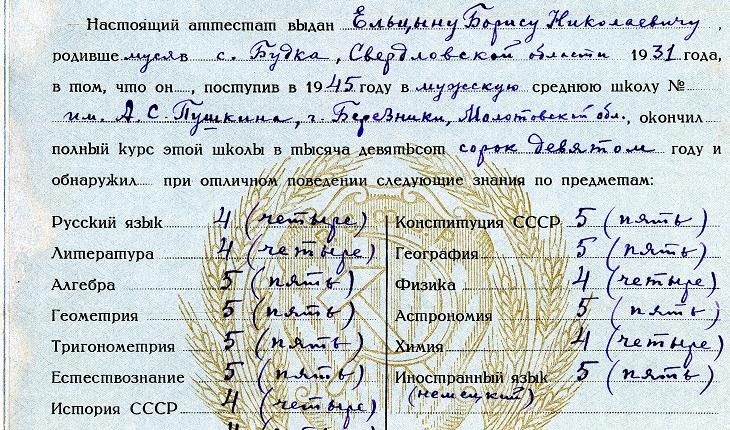 Настоящий аттестат выдан Ельцыну Борису Николаевичу,
родивше муся в с. Будка, Свердловской области 1931 года,
в том, что он , поступив в 1945 году в мужскую среднюю школу №
им. А.С. Пушкина, г. Березники, Молотовской обл., окончил
полный курс этой школы в тысяча девятьсот сорок девятом году и
обнаружил при отличном поведении следующие знания по предметам:
Русский язык 4 (четыре)
Литература 4 (четыре)
Алгебра 5 (пять)
Геометрия 5 (пять)
Тригонометрия 5 (пять)
Естествознание 5 (пять)
История СССР 4 (четыре)
Конституция СССР 5 (пять)
География 5 (пять)
Физика 4 (четыре)
Астрономия 5 (пять)
Химия 4 (четыре)
Иностранный язык 5 (пять)
(немецкий)